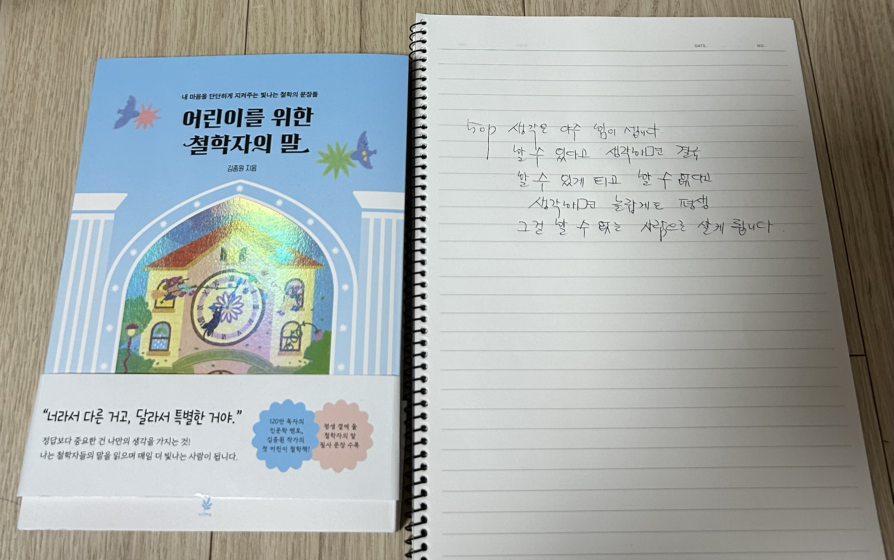 내 마음을 단단하게 지켜주는 빛나는 철학의 문장들
어린이를 위한
철학자의 말
김종원 지음
“너라서 다른 거고, 달라서 특별한 거야.”
정답보다 중요한 건 나만의 생각을 가지는 것!
나는 철학자들의 말을 읽으며 매일 더 빛나는 사람이 됩니다.
120만 독자의
인문학 멘토,
김종원 작가의
첫 어린이 철학책!
평생 곁에 둘
철학자의 말
필사 문장 수록
DATE.
NO.
생각은 아주 힘이 셉니다
할 수 있다고 생각하면 결국
할 수 있게 되고 할 수 없다고
생각하면 놀랍게도 평생
그걸 할 수 없는 사람으로 살게 됩니다.